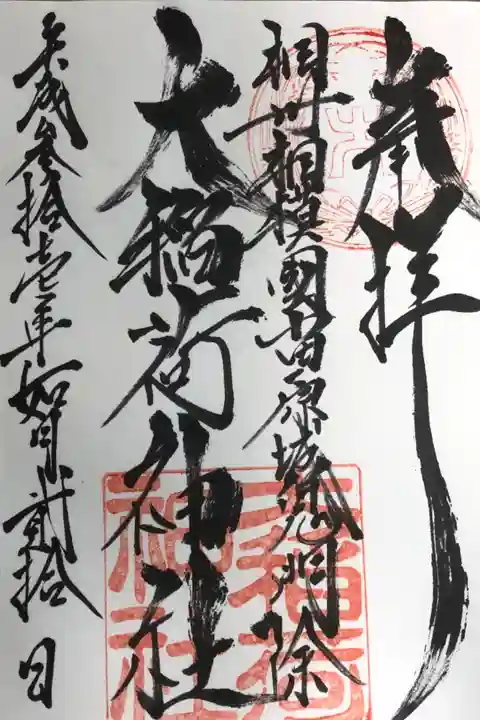 奉拝
相州相模國小田原城鬼門除
大稲荷神社
平成参拾壱年如月貳拾日
大稲荷
神社